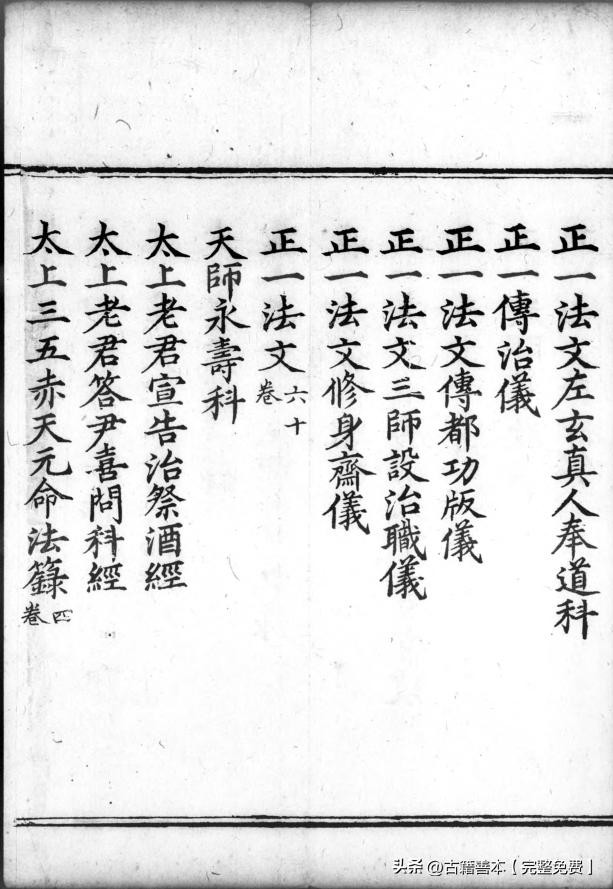 正一法文左玄真人奉道科
正一傳治儀
正一法文傳都功版儀
正一法文三師設治職儀
正一法文修身齋儀
正一法文六十卷
天師永壽科
太上老君宣告治祭酒經
太上老君答尹喜問科經
太上三五赤天元命法籙四卷
头条 @古籍善本【完整免费】